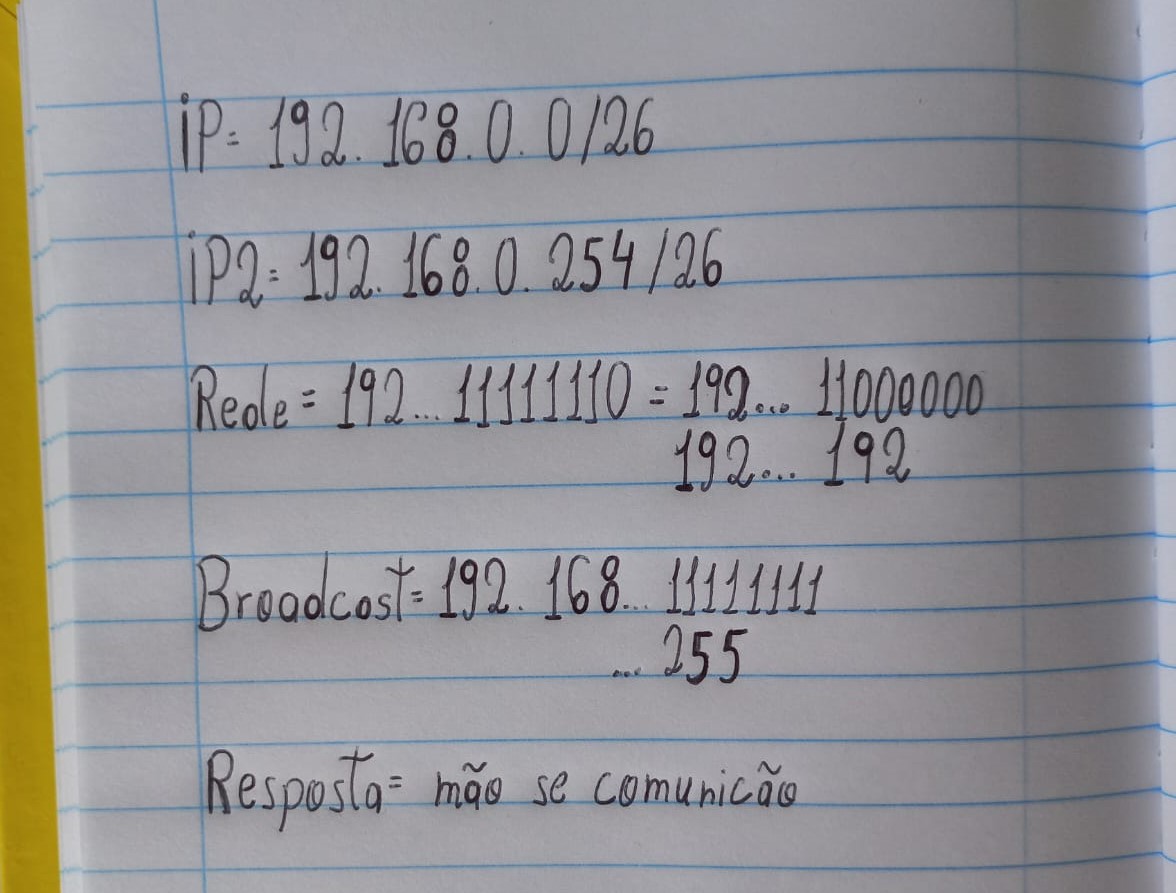 iP= 192.168.0.0/26
iP2= 192.168.0.254/26
Rede = 192... 11111110 = 192... 11000000
192... 192
Broadcost= 192.168... 11111111
... 255
Resposta= mão se comunicão